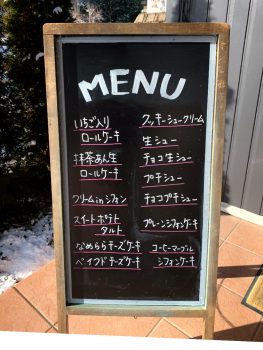 MENU
いちご入り
ロールケーキ
抹茶あん生
ロールケーキ
クリームinシフォン
スイートポテト
タルト
なめららチーズケーキ
ベイクドチーズケーキ
クッキーシュークリーム
生シュー
チョコ生シュー
プチシュー
チョコプチシュー
プレーンシフォンケーキ
コーヒーマーブル
シフォンケーキ